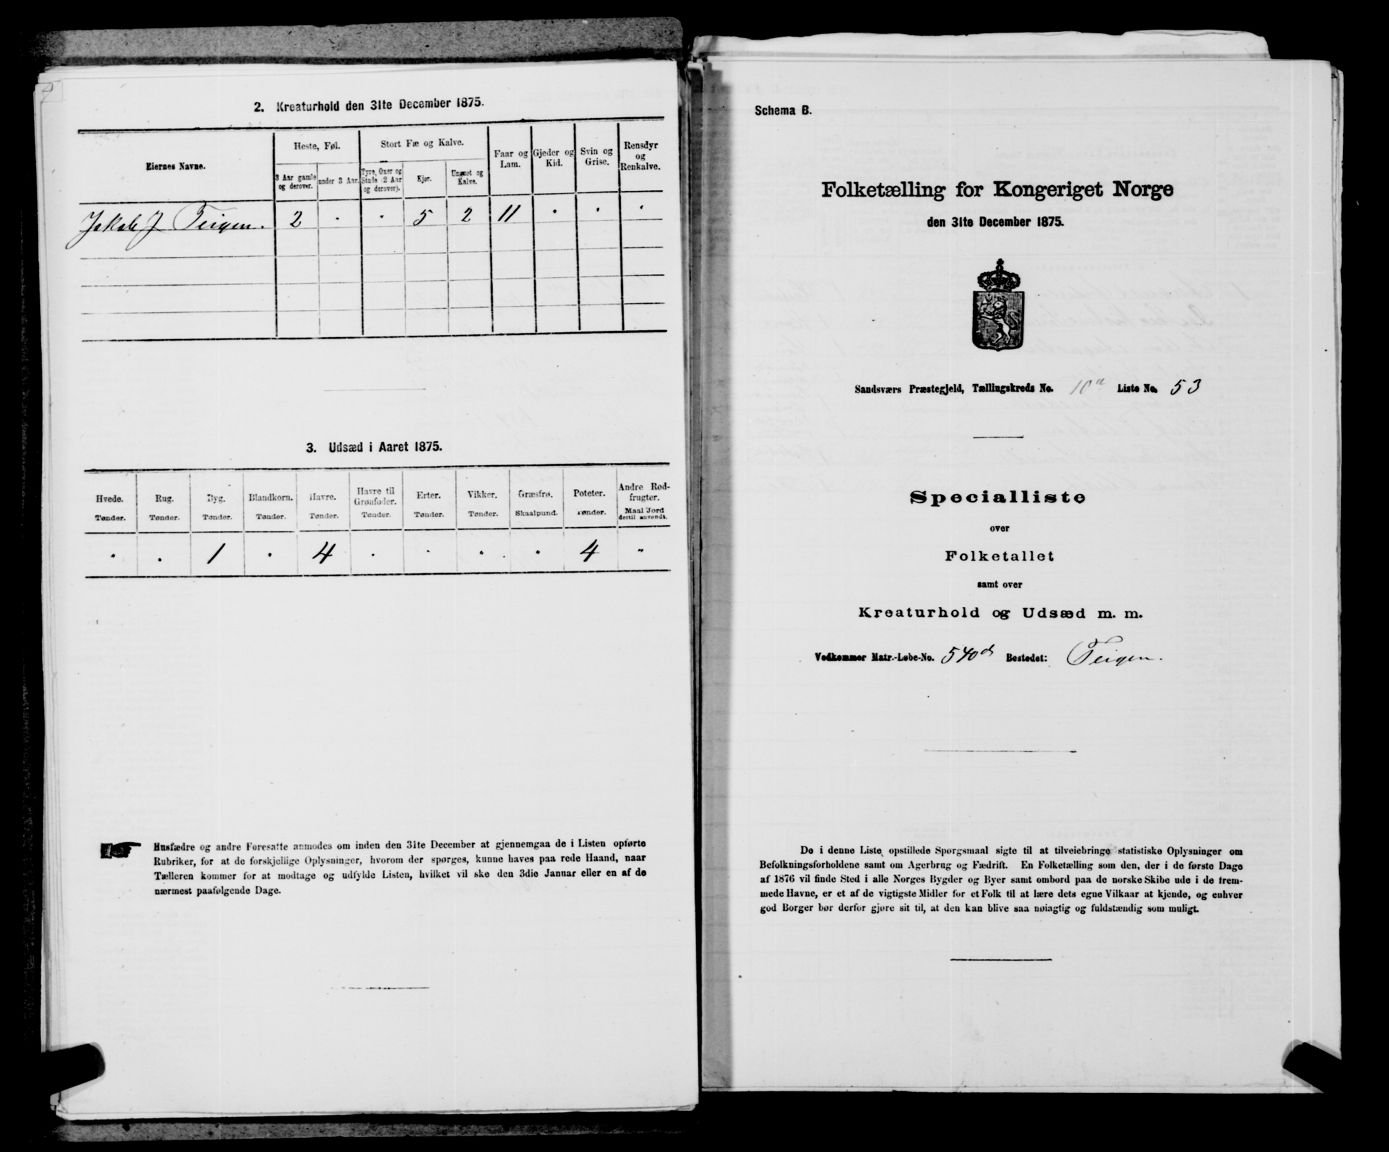 2. Kreaturhold den 31te December 1875.
Eiernes Navne.
Heste, Føl.
Stort Fæ og Kalve.
Faar og Lam.
Gjeder og Kid.
Svin og Grise.
Rensdyr og Renkalve.
3 Aar gamle og derover.
under 3 Aar.
Tyre, Oxer og Stude (2 Aar og derover).
Kjør.
Ungnøt og Kalve.
Jakob J Teigen. 2 " " 5 2 11 " " "
3. Udsæd i Aaret 1875.
Hvede. Rug. Byg. Blandkorn. Havre. Havre til Grønfoder. Erter. Vikker. Græsfrø. Poteter. Andre Rodfrugter.
Tønder. Tønder. Tønder. Tønder. Tønder. Tønder. Tønder. Tønder. Skaalpund. Tønder. Maal Jord dertil anvendt.
" " 1 " 4 " " " " 4 "
Husfædre og andre Foresatte anmodes om inden den 31te December at gjennemgaa de i Listen opførte
Rubriker, for at de forskjellige Oplysninger, hvorom der spørges, kunne haves paa rede Haand, naar
Tælleren kommer for at modtage og udfylde Listen, hvilket vil ske den 3die Januar eller en af de
nærmest paafølgende Dage.
Schema B.
Folketælling for Kongeriget Norge
den 31te December 1875.
Sandsværs Præstegjeld, Tællingskreds No. 10a Liste No. 53
Specialliste
over
Folketallet
samt over
Kreaturhold og Udsæd m. m.
Vedkommer Matr.-Løbe-No. 540d Bostedet: Teigen.
De i denne Liste opstillede Spørgsmaal sigte til at tilveiebringe statistiske Oplysninger om
Befolkningsforholdene samt om Agerbrug og Fædrift. En Folketælling som den, der i de første Dage
af 1876 vil finde Sted i alle Norges Bygder og Byer samt ombord paa de norske Skibe ude i de frem-
mede Havne, er et af de vigtigste Midler for et Folk til at lære dets egne Vilkaar at kjende, og enhver
god Borger bør derfor gjøre sit til, at den kan blive saa nøiagtig og fuldstændig som muligt.